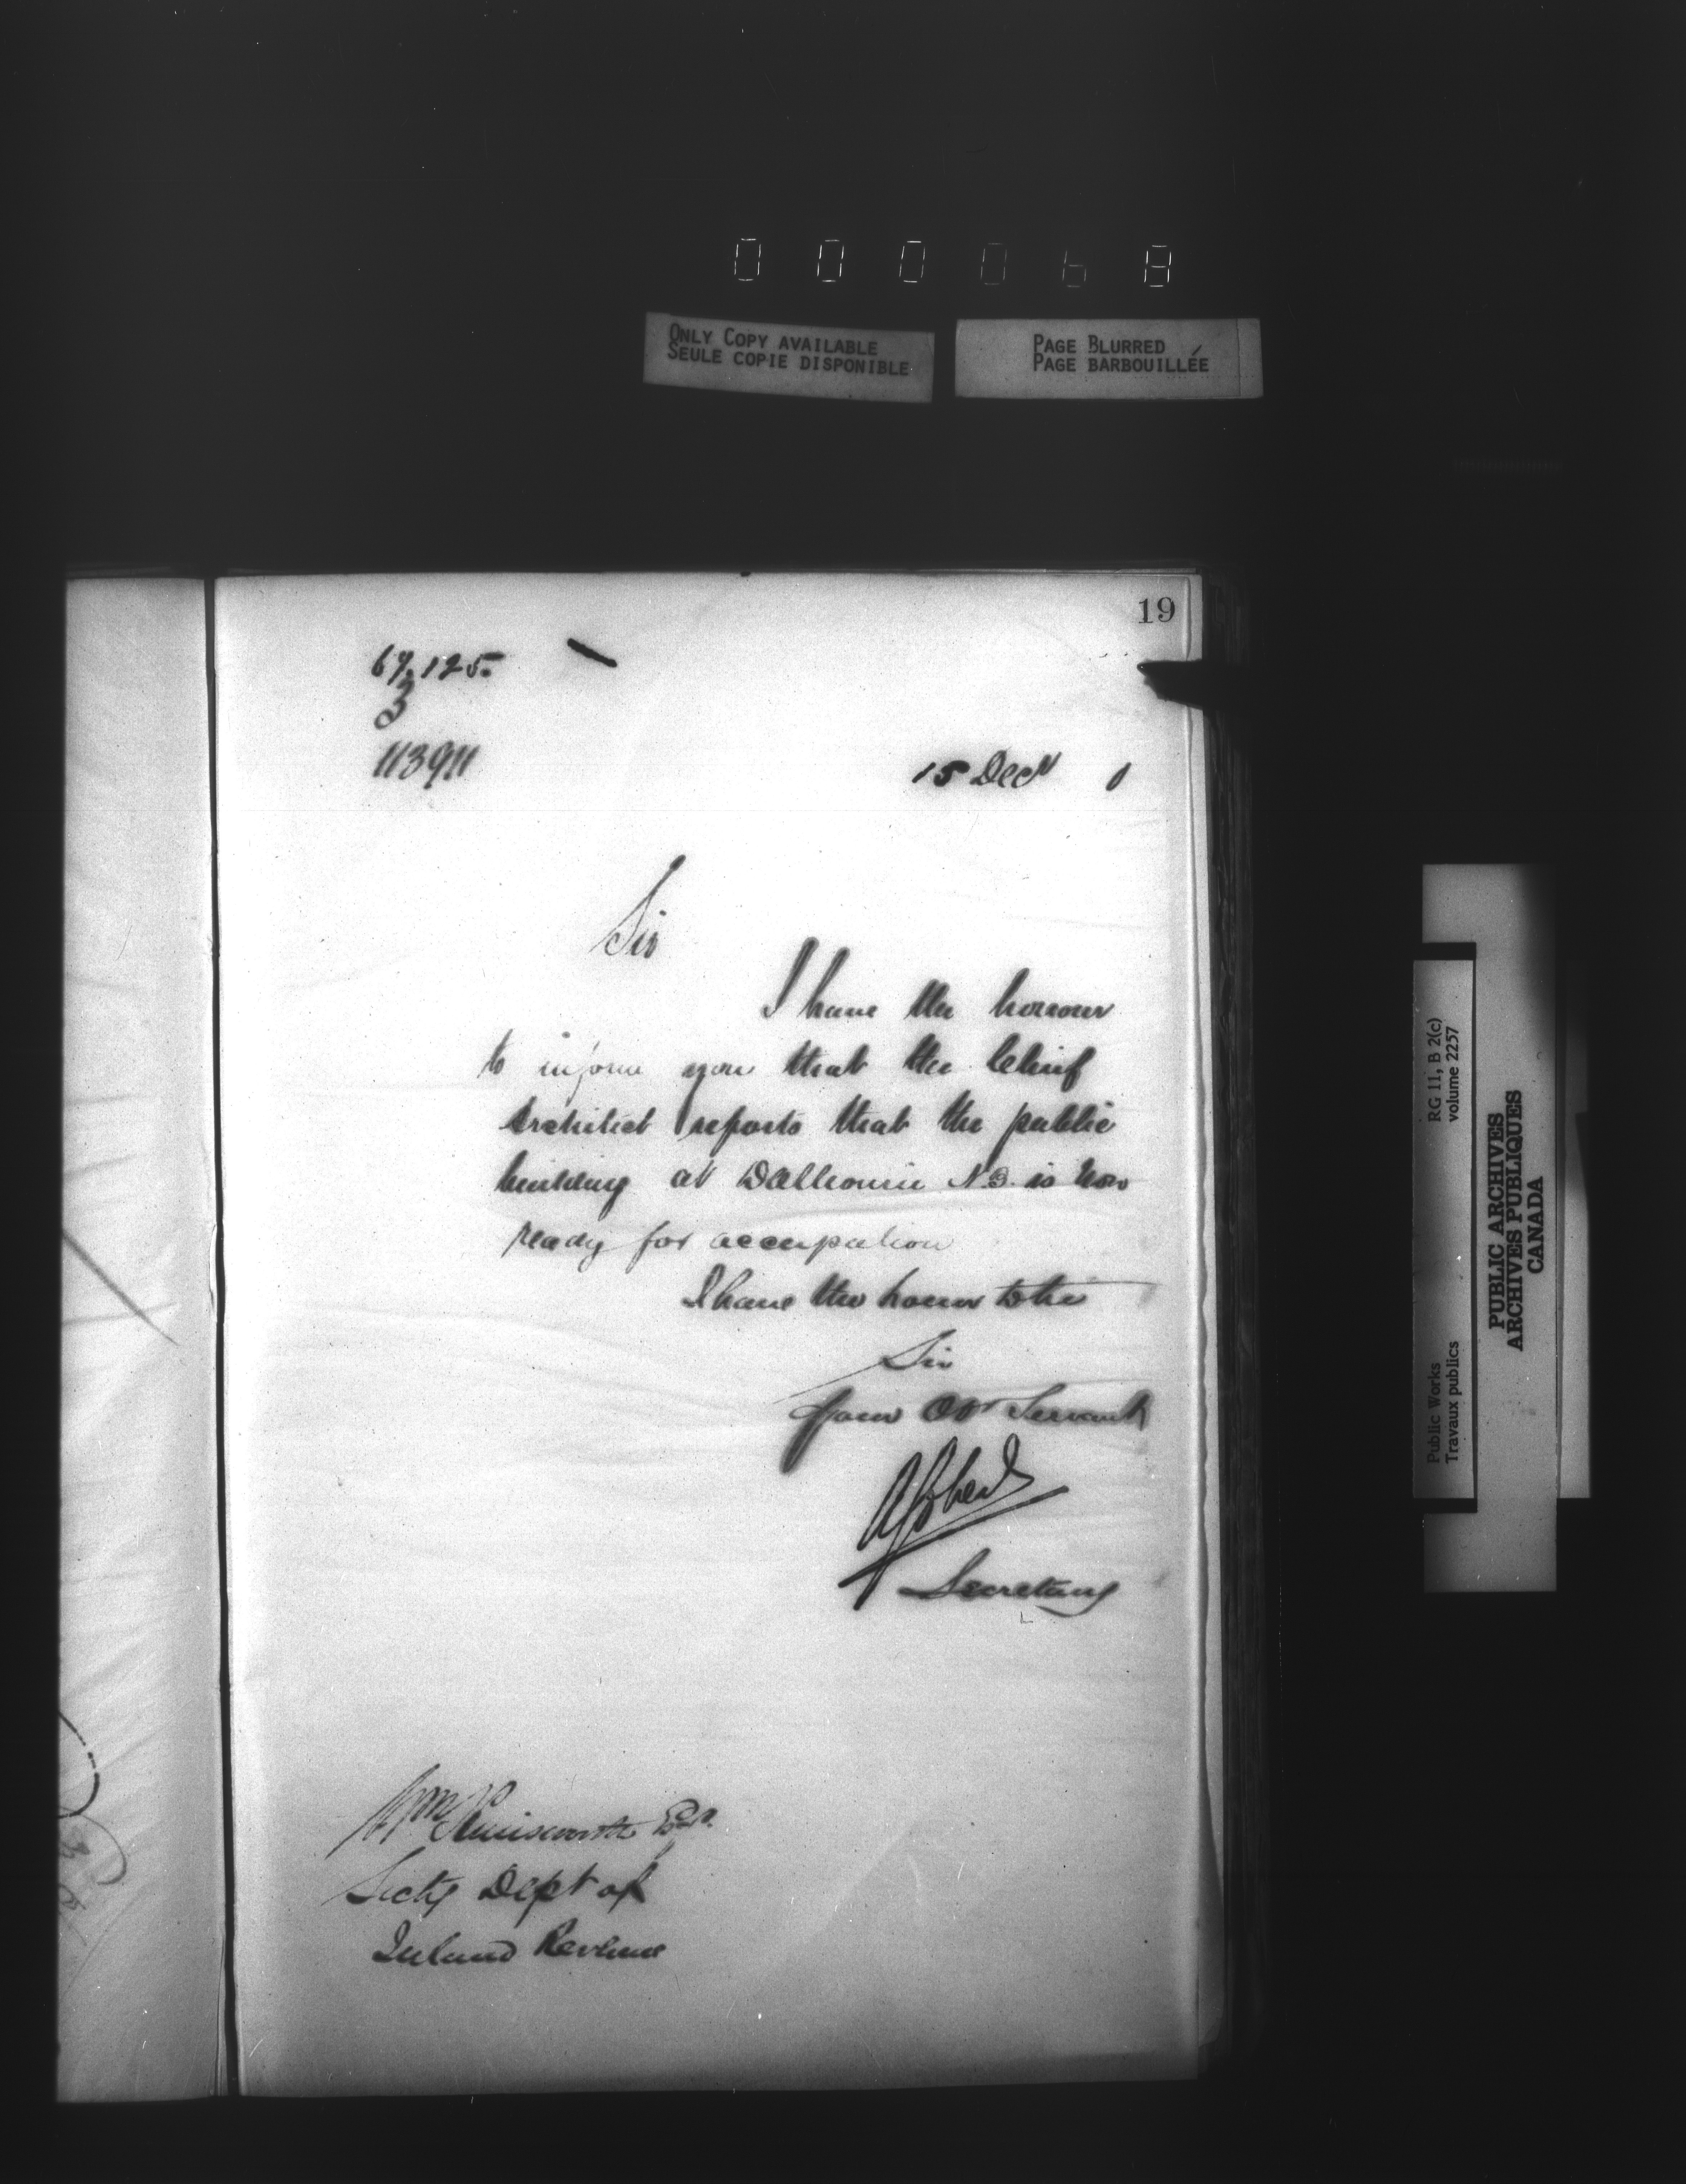 000068
ONLY COPY AVAILABLE
SEULE COPIE DISPONIBLE
PAGE BLURRED
PAGE BARBOUILLÉE
19
67,125.
3
113911
15 Decr
Sir
I have the honour
to inform you that the Chief
Architect reports that the public
building at Dalhousie N.B. is now
ready for occupation
I have the honor to be
Sir
Your Obt Servant
Secretary
Wm Esqr.
Secty Dept of
Inland Revenue
Public Works
Travaux publics
RG 11, B 2(c)
volume 2257
PUBLIC ARCHIVES
ARCHIVES PUBLIQUES
CANADA